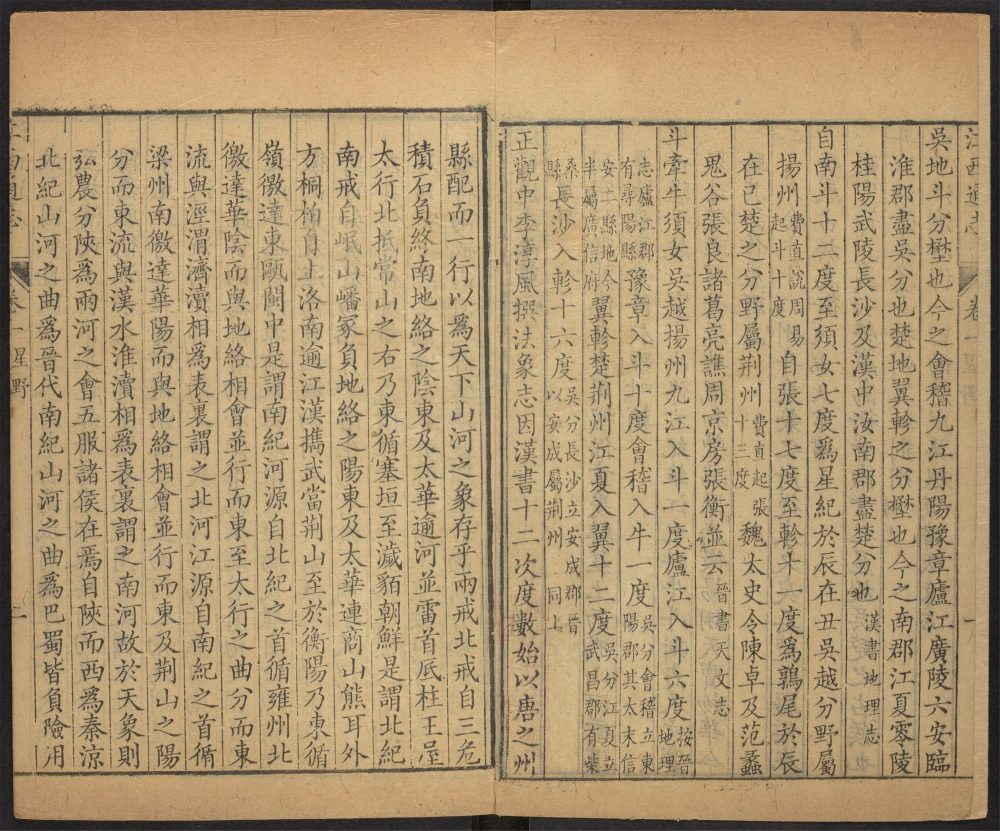 江西通志 卷一 一
吳地斗分壄也今之會稽九江丹陽豫章廬江廣陵六安臨
淮郡盡吳分也楚地翼軫之分壄也今之南郡江夏零陵
桂陽武陵長沙及漢中汝南郡盡楚分也漢書地理志
自南斗十二度至須女七度爲星紀於辰在丑吳越分野屬
揚州費直說周易起斗十度自張十七度至軫十一度爲鶉尾於辰
在巳楚之分野屬荆州費直起張十三度魏太史令陳卓及范蠡
鬼谷張良諸葛亮譙周京房張衡並云晉書天文志
斗牽牛須女吳越揚州九江入斗一度廬江入斗六度按晉地理
志廬江郡有尋陽縣豫章入斗十度會稽入牛一度吳分會稽立東陽郡其太末信
安二縣地今半屬廣信府翼軫楚荆州江夏入翼十二度吳分江夏立武昌郡有柴
桑縣長沙入軫十六度吳分長沙立安成郡晉以安成屬荆州同上
正觀中李淳風撰法象志因漢書十二次度數始以唐之州
縣配而一行以爲天下山河之象存乎兩戒北戒自三危
積石負終南地絡之陰東及太華逾河並雷首底柱王屋
太行北抵常山之右乃東循塞垣至濊貊朝鮮是謂北紀
南戒自岷山嶓冢負地絡之陽東及太華連商山熊耳外
方桐柏自上洛南逾江漢擕武當荆山至於衡陽乃東循
嶺徼達東甌閩中是謂南紀河源自北紀之首循雍州北
徼達華陰而與地絡相會並行而東至太行之曲分而東
流與涇渭濟瀆相爲表裏謂之北河江源自南紀之首循
梁州南徼達華陽而與地絡相會並行而東及荆山之陽
分而東流與漢水淮瀆相爲表裏謂之南河故於天象則
弘農分陝爲兩河之會五服諸侯在焉自陝而西爲秦涼
北紀山河之曲爲晉代南紀山河之曲爲巴蜀皆負險用
江西通志 卷一 星野 二